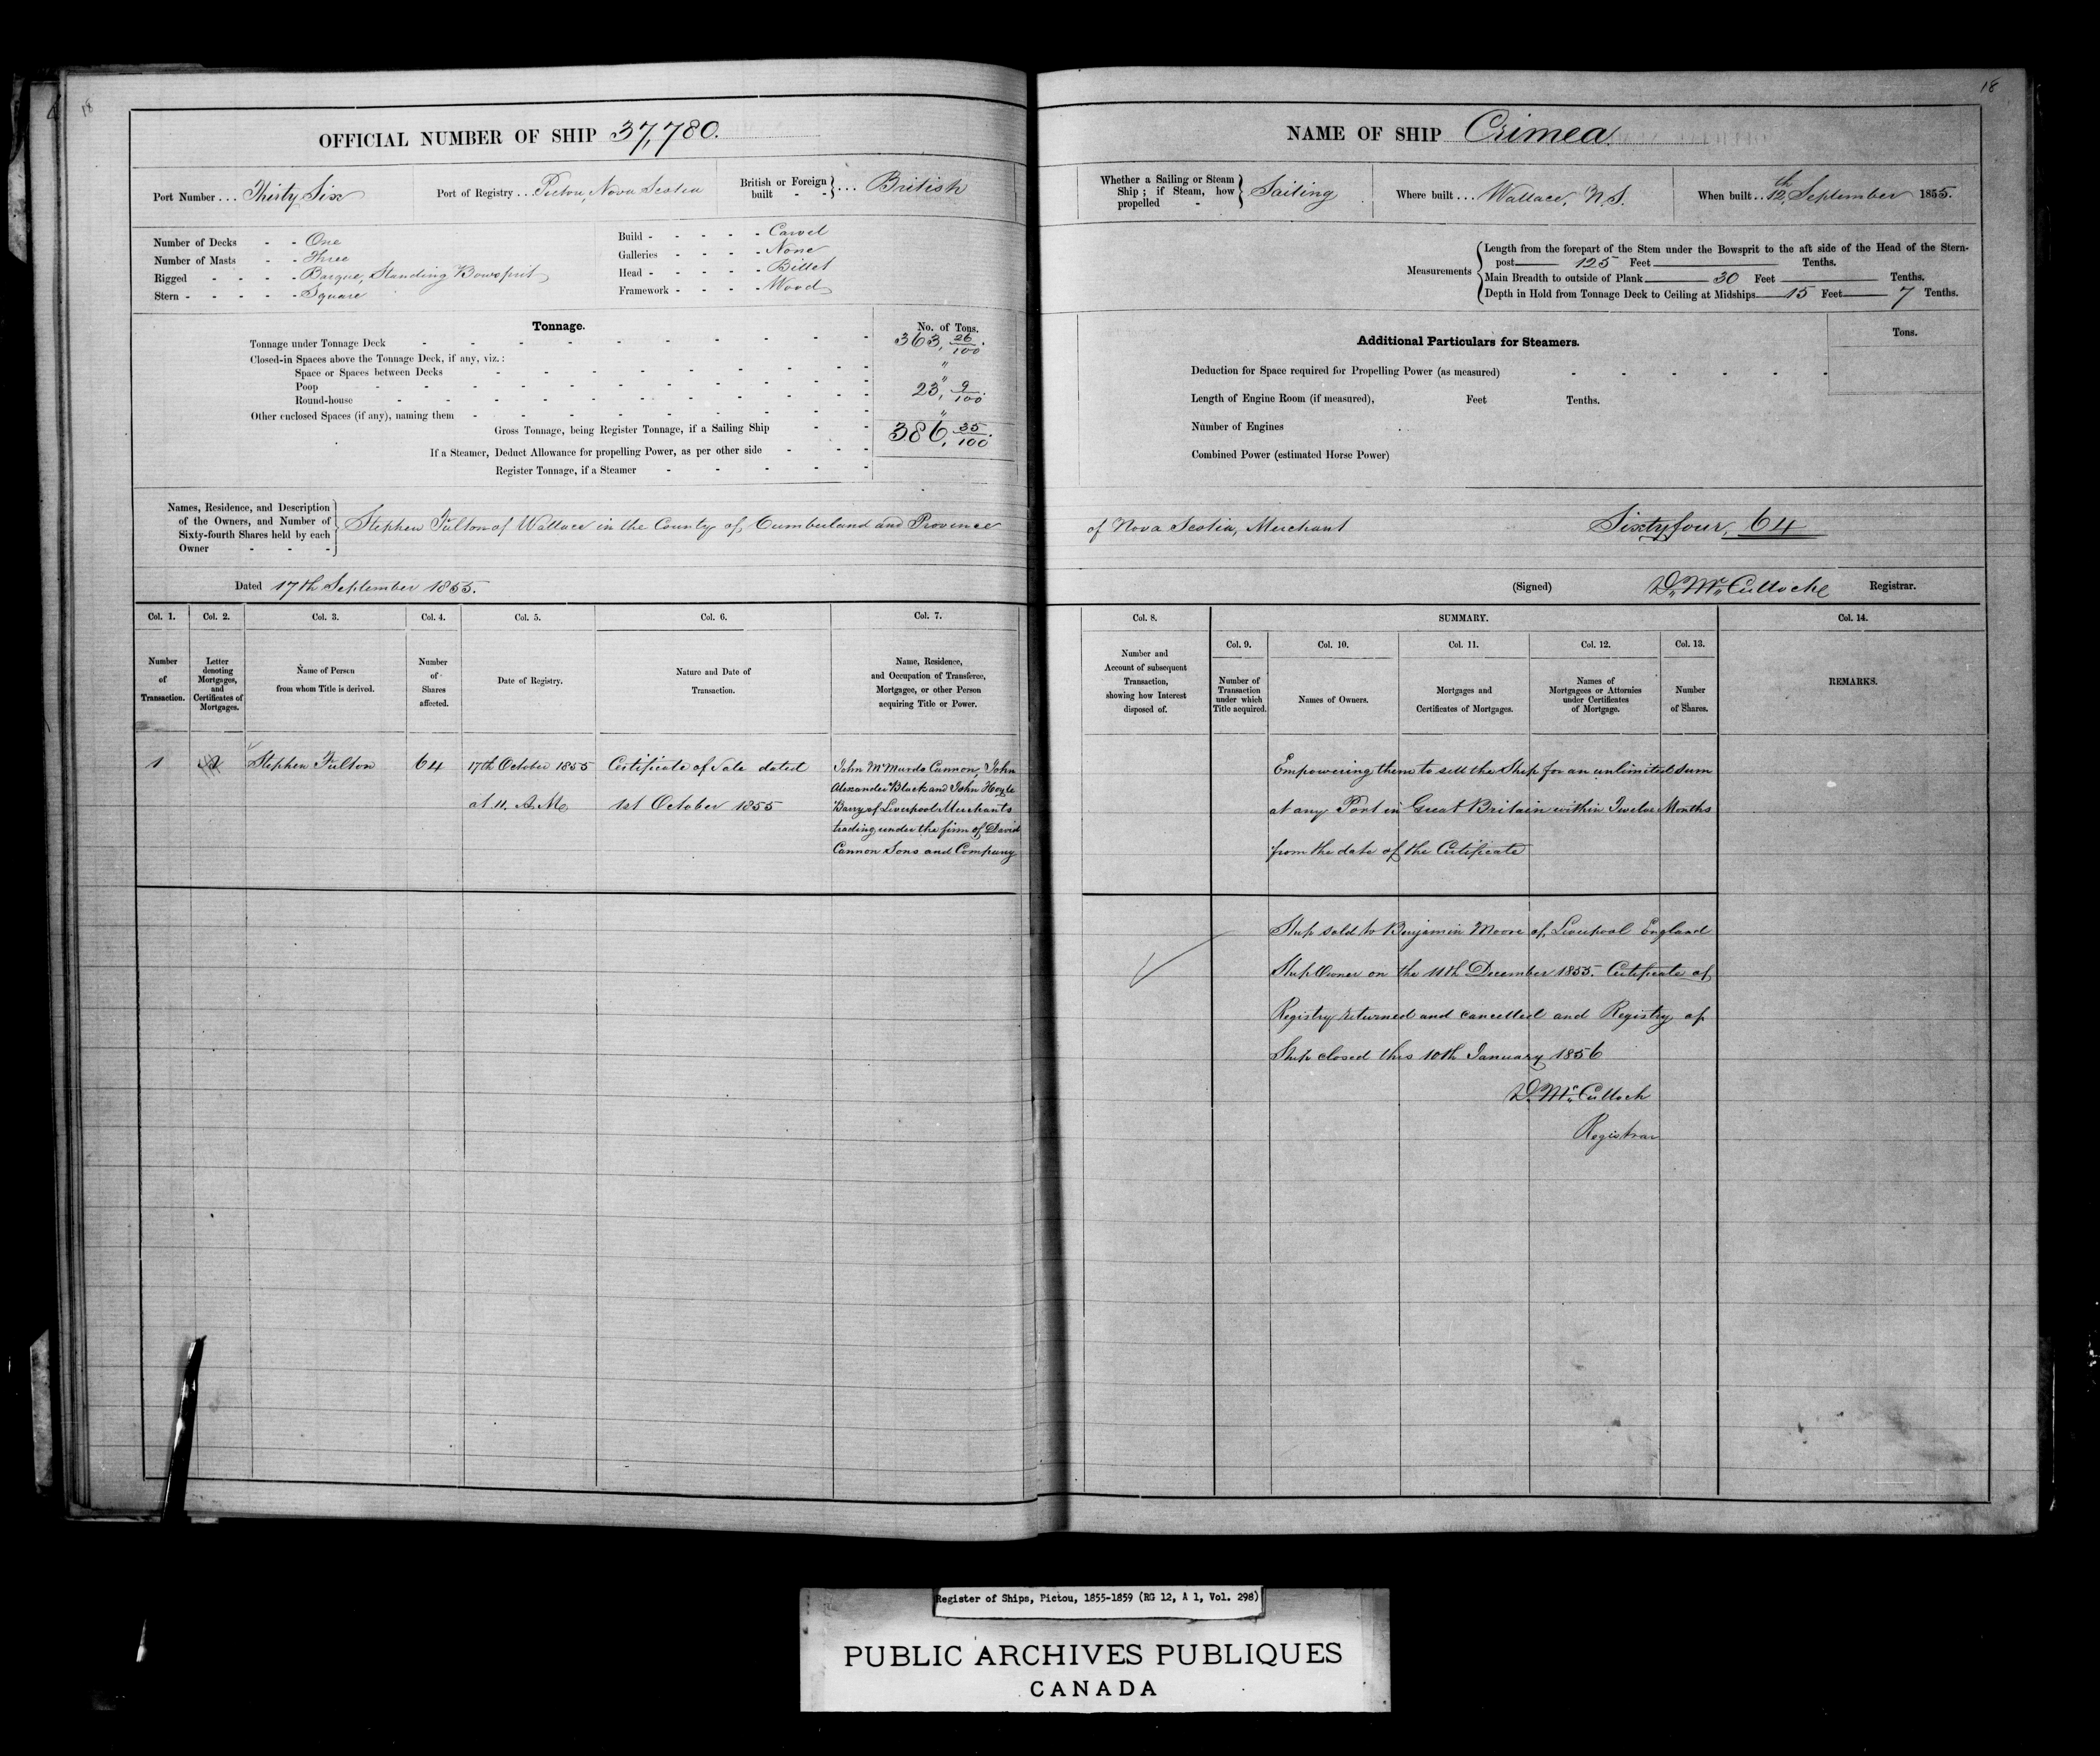 18
OFFICIAL NUMBER OF SHIP 37,780.
Port Number ... Thirty Six
Port of Registry ... Pictou, Nova Scotia
British or Foreign built - - } ... British
Number of Decks - - One
Number of Masts - - Three
Rigged - - - - Barque, Standing Bowsprit
Stern - - - - - Square
Build - - - - - Carvel
Galleries - - - - None
Head - - - - - Billet
Framework - - - - Wood
Tonnage.
No. of Tons.
Tonnage under Tonnage Deck 363, 26/100.
Closed-in Spaces above the Tonnage Deck, if any, viz.:
Space or Spaces between Decks "
Poop "
Round-house 23, 9/100.
Other enclosed Spaces (if any), naming them "
Gross Tonnage, being Register Tonnage, if a Sailing Ship 386, 35/100.
If a Steamer, Deduct Allowance for propelling Power, as per other side
Register Tonnage, if a Steamer
Names, Residence, and Description
of the Owners, and Number of
Sixty-fourth Shares held by each
Owner - - -
Stephen Fulton of Wallace in the County of Cumberland and Province
Dated 17th September 1855.
Col. 1.
Number
of
Transaction.
Col. 2.
Letter
denoting
Mortgages,
and
Certificates of
Mortgages.
Col. 3.
Name of Person
from whom Title is derived.
Col. 4.
Number
of
Shares
affected.
Col. 5.
Date of Registry.
Col. 6.
Nature and Date of
Transaction.
Col. 7.
Name, Residence,
and Occupation of Transferee,
Mortgagee, or other Person
acquiring Title or Power.
1
Stephen Fulton
64
17th October 1855
at 11. A.M.
Certificate of Sale dated
1st October 1855
John McMurdo Cannon, John
Alexander Black and John Hoyle
Barry of Liverpool Merchants
trading under the firm of David
Cannon Sons and Company
18
NAME OF SHIP Crimea.
Whether a Sailing or Steam
Ship; if Steam, how
propelled -
Sailing
Where built ... Wallace, N.S.
When built .. 12th September 1855.
Measurements
Length from the forepart of the Stem under the Bowsprit to the aft side of the Head of the Stern-
post 125 Feet Tenths.
Main Breadth to outside of Plank 30 Feet Tenths.
Depth in Hold from Tonnage Deck to Ceiling at Midships 15 Feet 7 Tenths.
Additional Particulars for Steamers.
Tons.
Deduction for Space required for Propelling Power (as measured)
Length of Engine Room (if measured), Feet Tenths.
Number of Engines
Combined Power (estimated Horse Power)
of Nova Scotia, Merchant Sixtyfour, 64
(Signed) D. McCulloche Registrar.
Col. 8.
Number and
Account of subsequent
Transaction,
showing how Interest
disposed of.
SUMMARY.
Col. 9.
Number of
Transaction
under which
Title acquired.
Col. 10.
Names of Owners.
Col. 11.
Mortgages and
Certificates of Mortgages.
Col. 12.
Names of
Mortgagees or Attornies
under Certificates
of Mortgage.
Col. 13.
Number
of Shares.
Col. 14.
REMARKS.
Empowering them to sell the Ship for an unlimited sum
at any Port in Great Britain within Twelve Months
from the date of the Certificate
Ship sold to Benjamin Moore of Liverpool England
Ship Owner on the 11th December 1855. Certificate of
Registry returned and cancelled and Registry of
Ship closed this 10th January 1856
D. McCulloch
Registrar
Register of Ships, Pictou, 1855-1859 (RG 12, A 1, Vol. 298)
PUBLIC ARCHIVES PUBLIQUES
CANADA